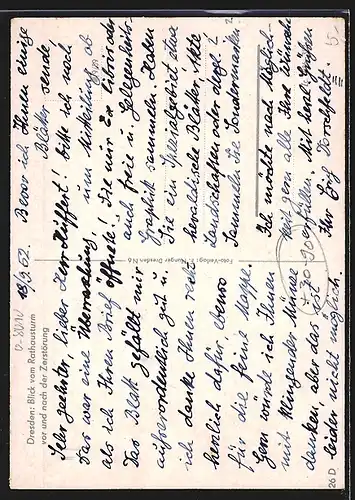 Dresden: Blick vom Rathausturm
vor und nach der Zerstörung
18/9.62.
Sehr geehrter, lieber Herr Seiffert!
Das war eine Überraschung,
als ich Ihren Brief öffnete!
Das Blatt gefällt mir
außerordentlich gut u.
ich danke Ihnen recht
herzlich dafür ebenso
für die feine Mappe.
Gern würde ich Ihnen
mit klingender Münze
danken, aber das ist
leider nicht möglich.
Foto-Verlag: Hunger Dresden N 6
Bevor ich Ihnen einige
Blätter sende,
bitte ich noch
um Mitteilung ob
Sie nur Ex Libris oder
auch freie u. Gelegenheits-
Graphik sammeln. Haben
Sie ein Spezialgebiet etwa
heraldische Blätter, Akte
Landschaften oder dergl.?
Sammeln Sie Sondermarken?
Ich möchte nach Möglich-
keit gern alle Ihre Wünsche
erfüllen. Mit herzl. Grüßen
Ihr
26 D